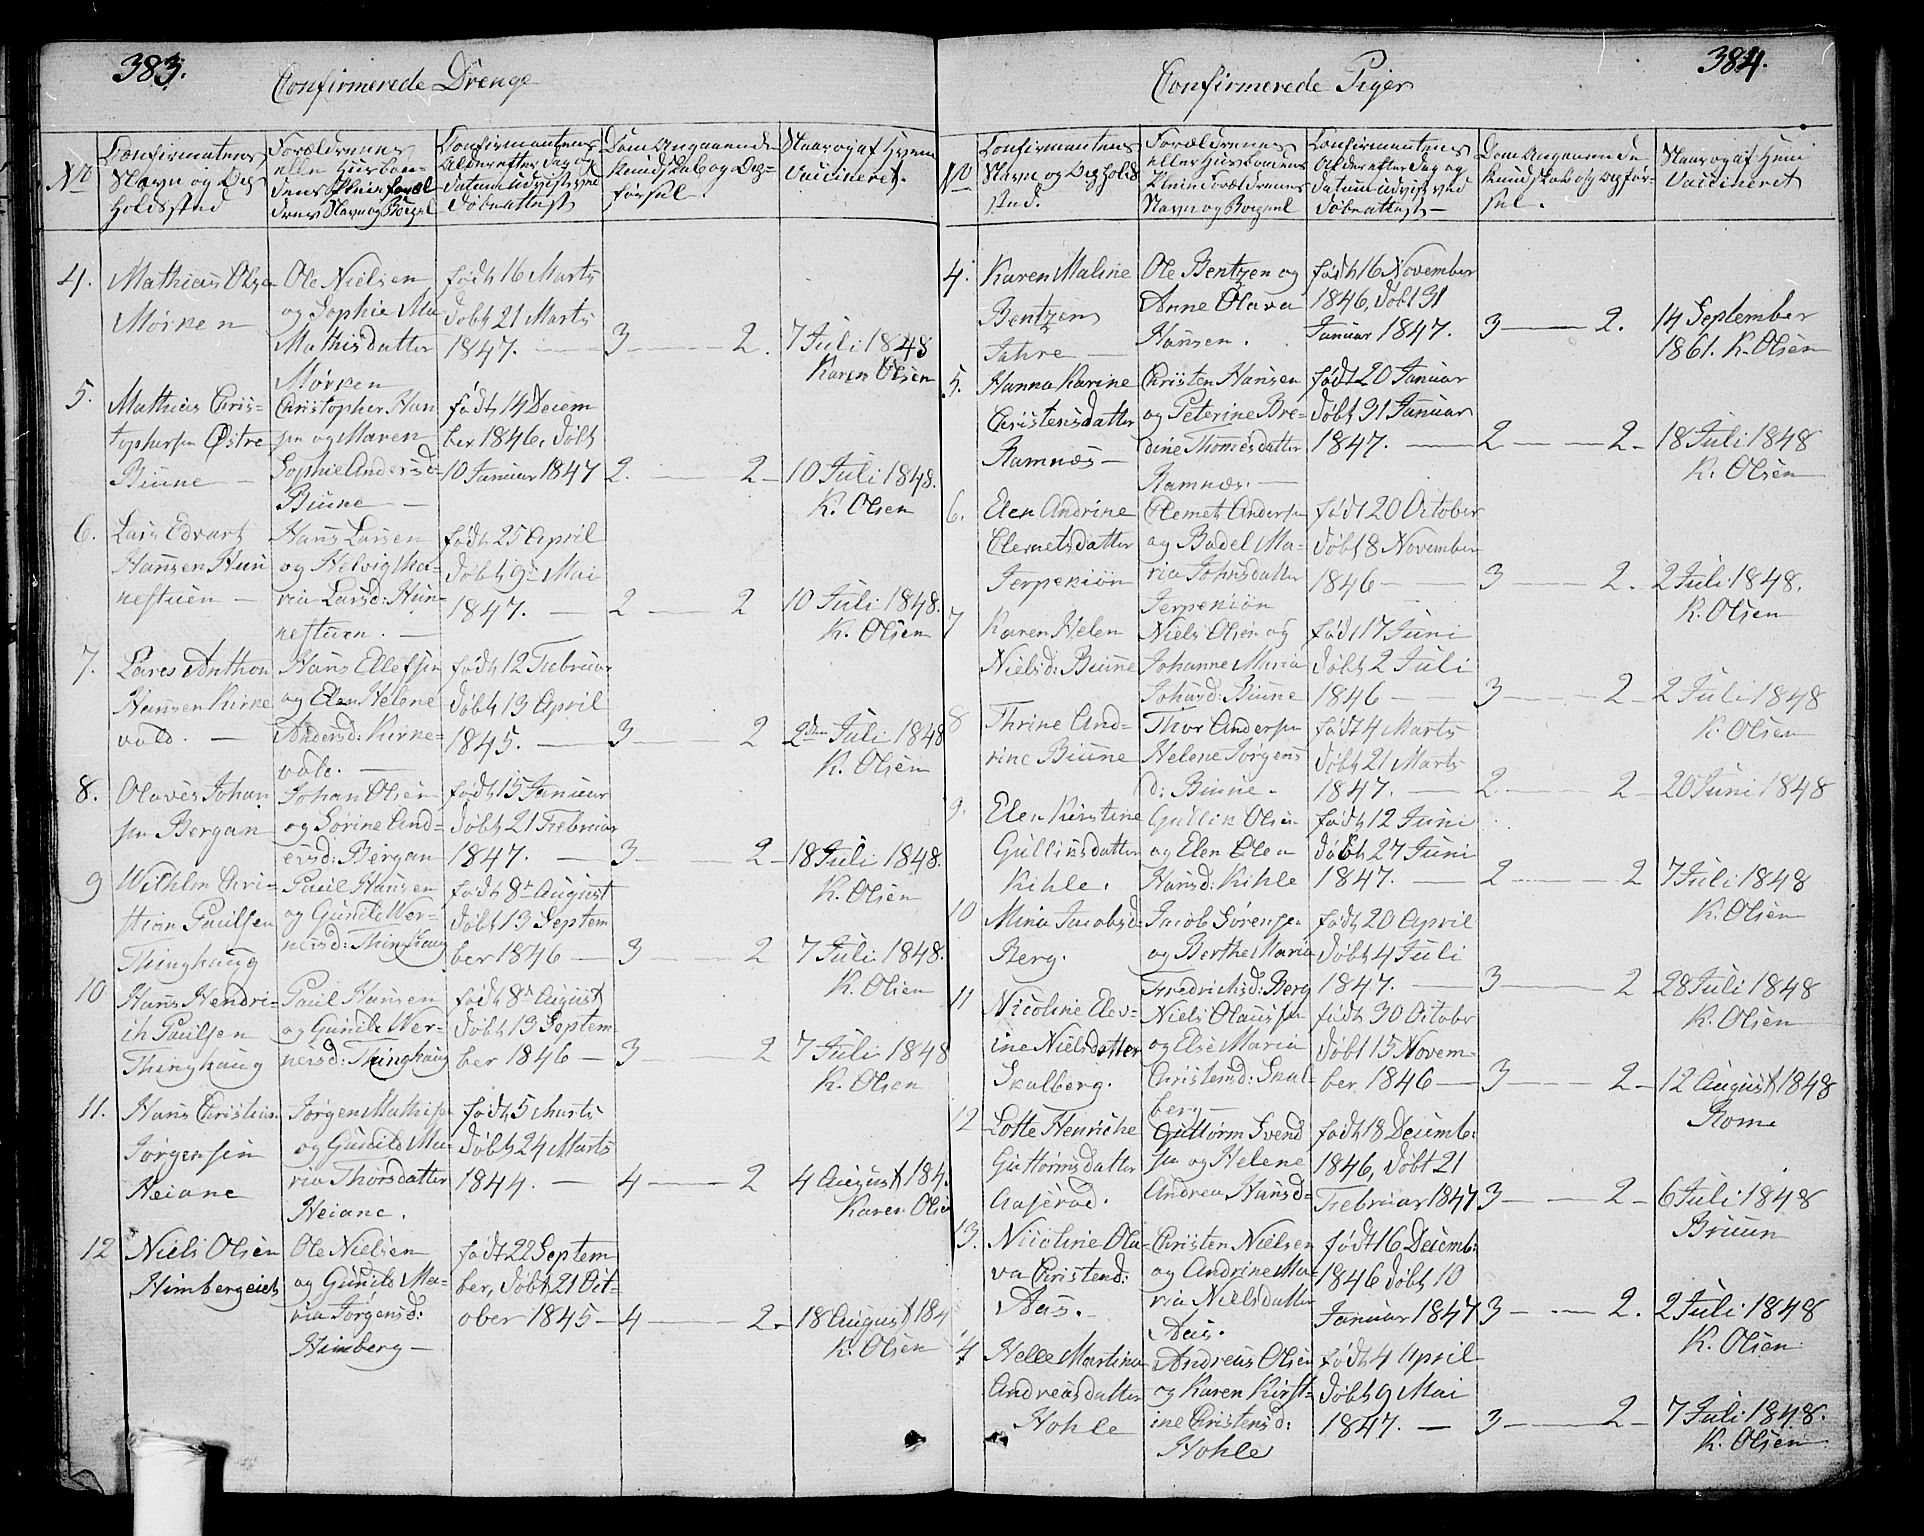 383.
Confirmerede Drenge
No
Confirmatens
Navn og Op
holdssted
Forældrenes
eller Husbon
dens
drenes Navn og Boepæl
Confirmantens
Alder efter Dag og
Datum udvist ved
Døbeattest
Dom Angaaende
Kundskab og Op-
førsel.
Naar og af Hvem
Vaccineret.
4.
Mathias Olsen
Mørken
Ole Nielsen
og Sophie Ma
Mathisdatter
Mørken
født 16 Marts
Døbt 21 Marts
1847. —
3 — 2.
7 Juli 1848
Karen Olsen
5.
Mathias Chris-
topherse Østre
Biune —
Christopher Han
sen og Maren
Sophie Andersd
Biune —
født 14 Decem
ber 1846, Døbt
10 Januar 1847
2. — 2 —
10 Juli 1848.
K. Olsen
6.
Lars Edvart
Hansen Hun
nestuen —
Hans Larsen
og Helvig Ma-
ria Larsd: Hun-
nestuen. —
født 25 April
Døbt 9de Mai
1847. —
2 — 2
10 Juli 1848.
K. Olsen
7.
Lares Anthon
Hansen Kirke
vold. —
Hans Ellefsen
og Elen Helene
Andersd: Kirke-
vole. —
født 12 Februar
Døbt 13 April
1845. —
3 — 2
2den Juli 1848
K. Olsen
8.
Olaves Johan
sen Bergan
Johan Olsen
og Sørine And-
ersd: Bergan
født 15 Januar
Døbt 21 Februar
1847. —
3 — 2 —
18 Juli 1848.
K. Olsen
9
Wilhlm Chri-
stian Paulsen
Thinghaug
Paul Hansen
og Gunild Wer-
nersd: Thinghaug
født 8de August
Døbt 13 Septem
ber 1846 —
3 — 2
7 Juli 1848.
K. Olsen
10
Hans Hendri-
ch Paulsen
Thinghaug
Paul Hansen
og Gunild Wer-
nersd: Thinghaug
født 8de August
Døbt 13 Septem-
ber 1846 —
3 — 2
7 Juli 1848
K. Olsen
11.
Hans Christian
Jørgensen
Heiane
Jørgen Mathise
og Gunild Ma-
ria Thorsdatter
Heiane.
født 5 Marts
Døbt 24 Marts
1844. —
4 — 2
4 August 184
Karen Olse
12
Niels Olsen
Himbergeiet
Ole Nielsen
og Gunild Ma-
ria Jørgensd:
Himberg —
født 22 Septem
ber, Døbt 21 Oct-
ober 1845 —
4 — 2 —
18 August 184
K. Olsen
384.
Confirmerede Piger
No
Confirmantens
Navn og Opholds
sted.
Forældrenes
eller Husbondens
Navn og Boepæl
Confirmantens
Alder efter Dag og
Datum udvist ved
Døbeattest —
Dom Angaaende
Kundskab og Opfør-
sel.
Naar og af Hvem
Vaccineret
4.
Karen Maline
Bentzen
Jahre —
Ole Bentzen og
Anne Olava
Hansen.
født 16 November
1846, Døbt 31
Januar 1847.
3 — 2.
14 September
1861. K. Olsen
5.
Hanna Karine
Christensdatter
Ramnæs —
Christen Hansen
og Peterine Bre-
dine Thomesdatter
Ramnæs. —
født 20 Januar
Døbt 31 Januar
1847. —
2 — 2 —
18 Juli 1848
K. Olsen
6.
Elen Andrine
Clemetsdatter
Jerpekiøn
Clemet Anderse
og Badel Ma-
ria Johnsdatter
Jerpekiøn
født 20 October
Døbt 8 November
1846 —
3 — 2.
2 Juli 1848.
K. Olsen
7
Karen Helen
Nielsd: Biune
Niels Olsen og
Johanne Maria
Johansd: Biune
født 17 Juni
Døbt 2 Juli
1846 —
3 — 2
2 Juli 1848
K. Olsen
8
Thrine And-
rine Biune
Thor Anderse
Helene Jørgens
d: Biune.
født 4 Marts
Døbt 21 Marts
1847. —
2 — 2 —
20 Juni 1848
9.
Elen Kirstine
Gulliksdatter
Kihle.
Gullik Olsen
og Elen Olea
Hansd: Kihle
født 12 Juni
Døbt 27 Juni
1847. —
2 — 2
7 Juli 1848
K. Olsen
10
Mina Jacobsd
Berg.
Jacob Sørense
og Berthe Maria
Fredrichsd: Berg
født 20 April
Døbt 4 Juli
1847. —
3 — 2
28 Juli 1848
K. Olsen
11
Nicoline Elev-
ine Nielsdatter
Skalberg.
Niels Olausse
og Else Maria
Christensd: Skal-
berg —
født 30 Octobr
Døbt 15 Novem-
ber 1846 —
3 — 2 —
12 August 1848
Rome
12
Lotte Henriche
Guttormsdatter
Aaserød.
Guttorm Svend
sen og Helene
Andrea Hansd
født 18 Decemb:
1846, Døbt 21
Februar 1847
3 — 2 —
6 Juli 1848
Bruun
13.
Nicoline Ola-
va Christend:
Aas.
Christen Nielsen
og Andrine Ma-
ria Nielsdatter
Aas.
født 16 Decemb:
1846 Døbt 10
Januar 1847
3 — 2.
2 Juli 1848
K. Olsen
14
Helle Martina
Andreasdatter
Hohle
Andreas Olsen
og Karen Kirst-
ine Christensd:
Hohle
født 4 April
Døbt 9 Mai
1847. —
3 — 2 —
7 Juli 1848.
K. Olsen